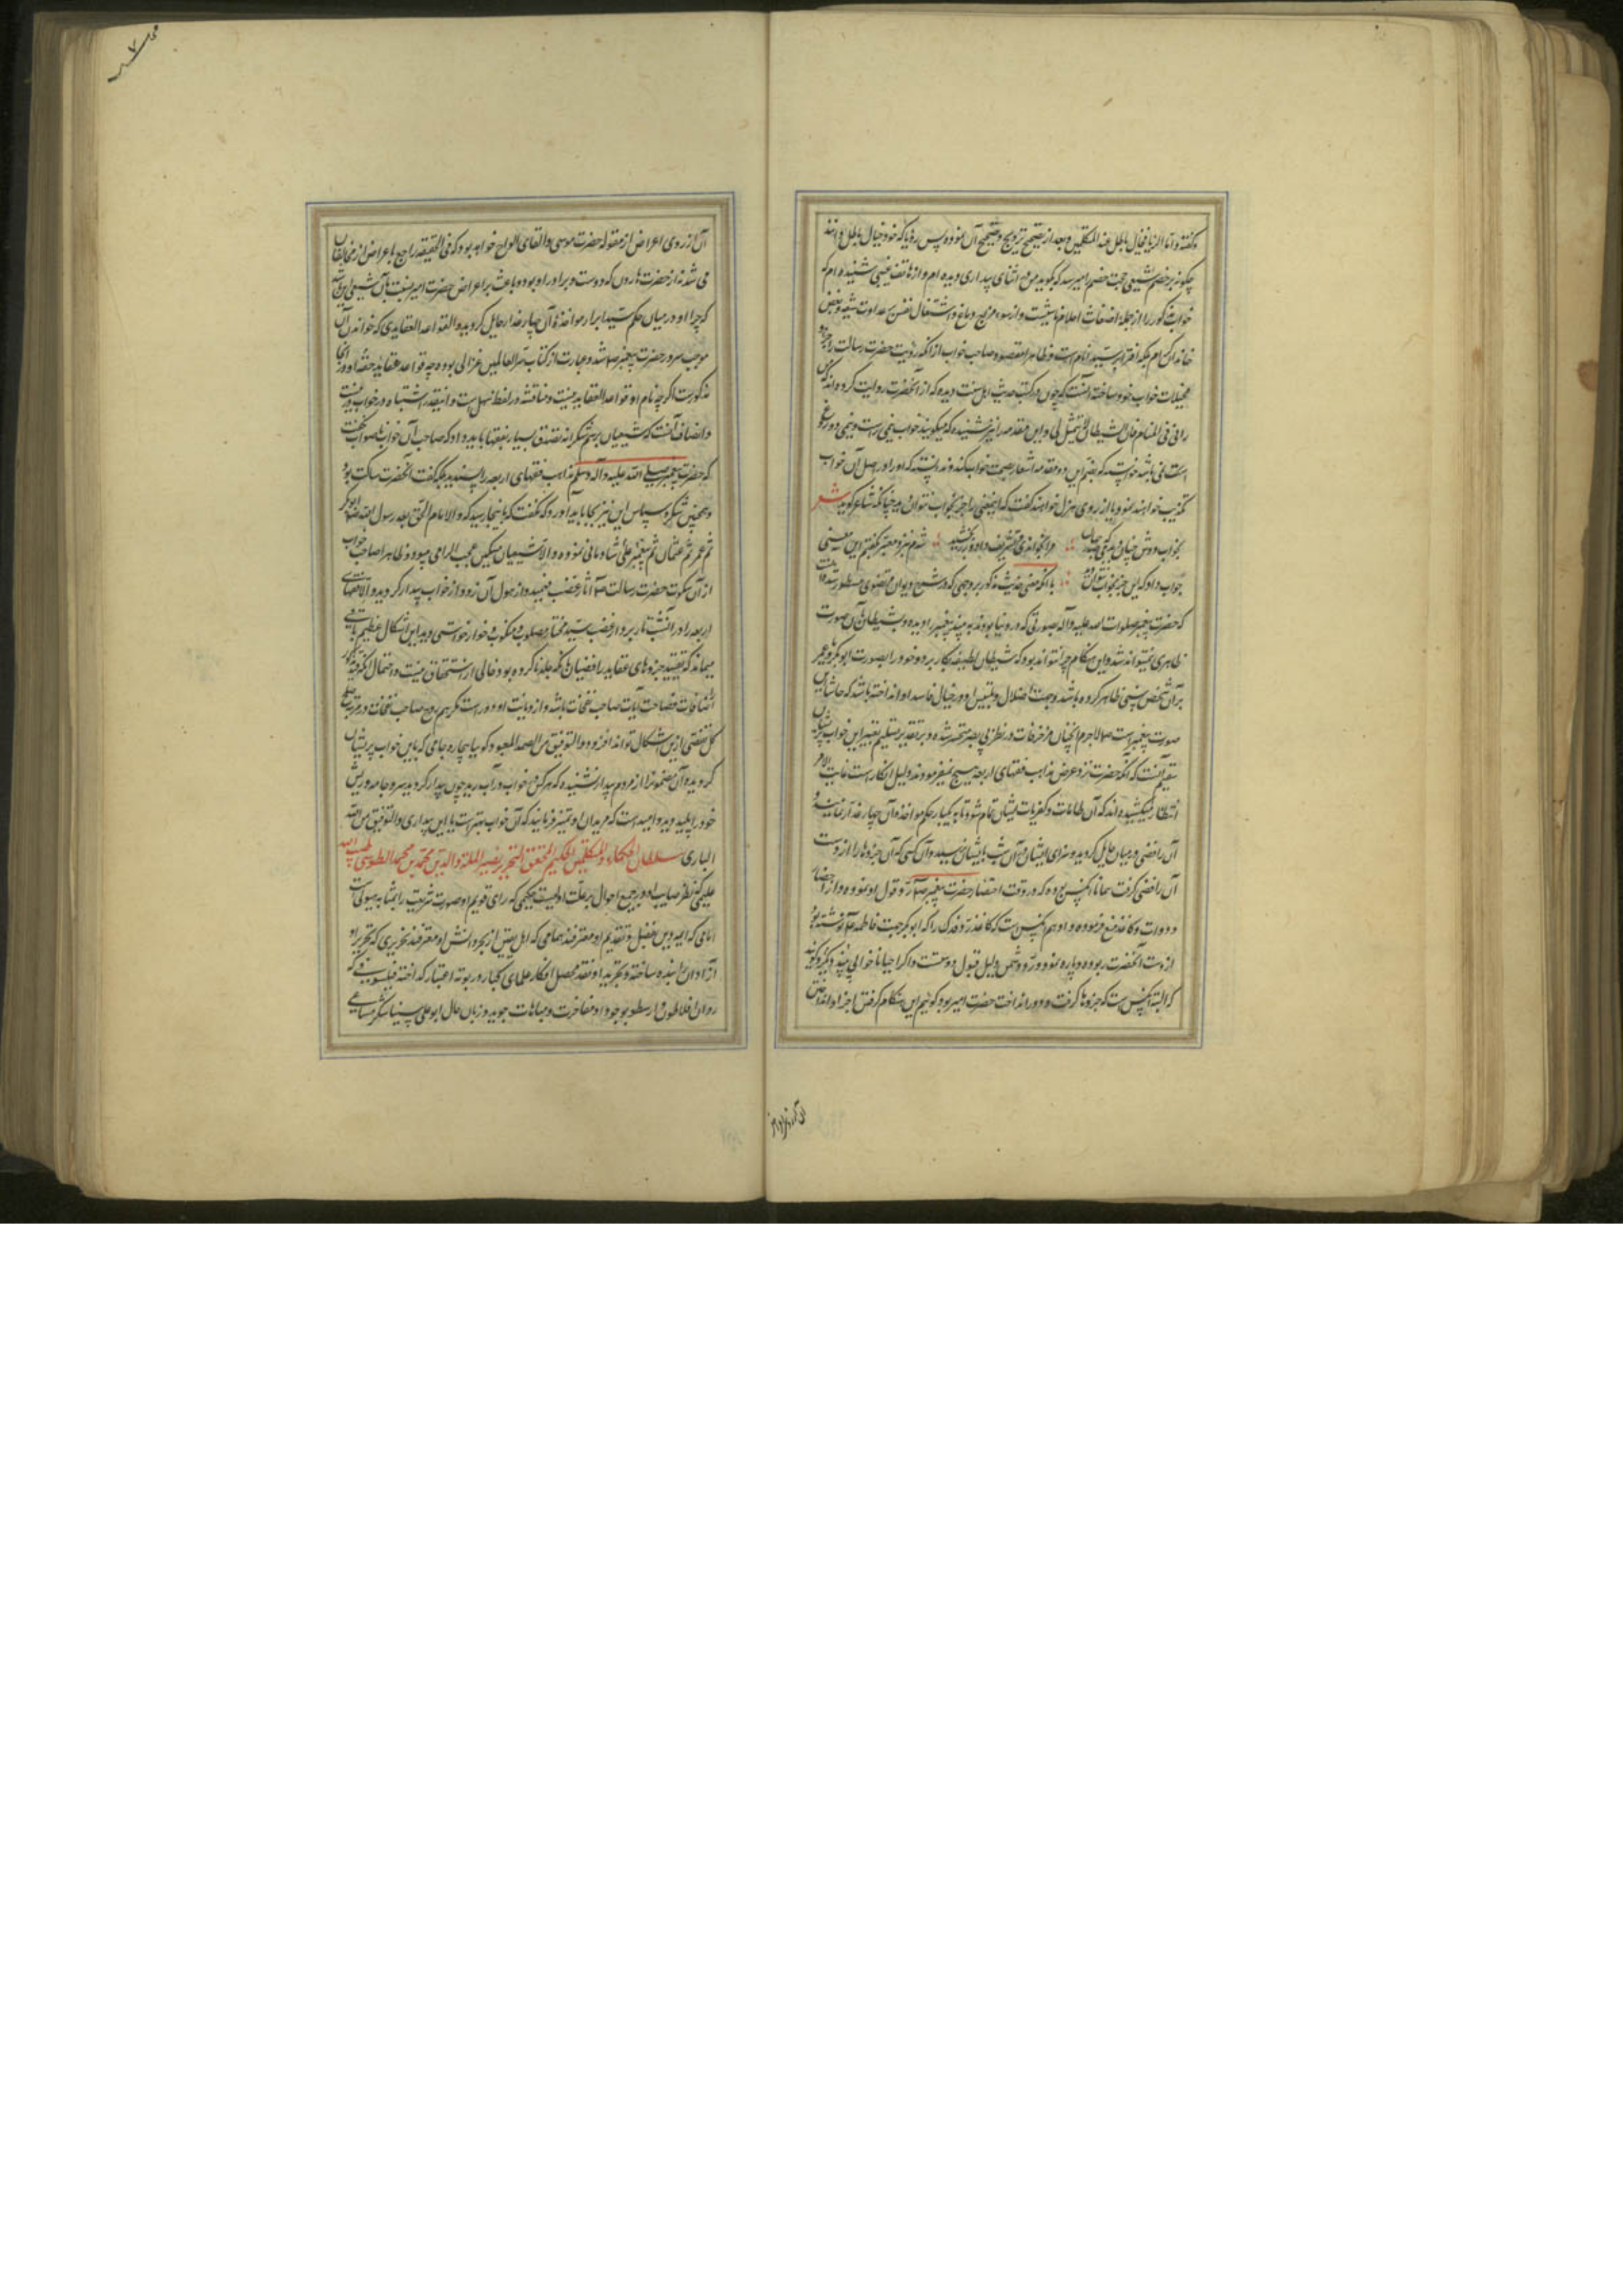 و گفته و اما الرؤیا فخیال باطل عند المتکلمین و بعد از تصحیح ترویج و تصحیح آن نموده پس رؤیا که خود خیال باطل دانند
چگونه بر خصم شیعی حجت خصم امیر سد که بگوید من در اثنای بیداری دیده‌ام و از هاتف غیبی شنیده‌ام که
خواب مذکور را از جمله اضغاث احلام و از سوء مزاج دماغ و اشتغال نفس بعداوت شیعه و بغض
خاندان کرام بلکه افترا بر سید انام است و ظاهرا مقصود صاحب خواب از آنکه رؤیت حضرت رسالت را
مخیلات خواب خود ساخته آنست که چون در کتب حدیث اهل سنت دیده که از آنحضرت روایت کرده‌اند که من
رآنی فی المنام فان الشیطان لا یتمثل بی و این مقدمه را نیز شنیده که میگویند خواب نیمی راست و نیمی دروغ
است می باشد خواسته که بضم این دو مقدمه اشعار بصحت خواب کند و ندانسته که او را در اصل آن خواب
تکذیب خواهند نمود یا از روی هزل خواهند گفت که این معنی را جز بخواب نتوان دید چنانکه شاعر گوید شعر
بخواب دوش چنان دیدمی که صدر جهان مرا بخواند و تشریف داد و زر بخشید شدم بنزد معبر بگفتم این معنی
جواب داد که این جز بخواب نتوان دید با آنکه معنی حدیث مذکور بر وجهی که در شرح دیوان مرتضوی مسطور شده آنست
که حضرت پیغمبر صلوات الله علیه و آله بصورتی که در دنیا بودند به بیند پیغمبر را دیده و شیطان بآن صورت
ظاهر نمیتواند شد و این هنگام چرا نتواند بود که شیطان لطیفه بکار برده و خود را بصورت ابوبکر و عمر
بر آن شخص سنی ظاهر کرده باشد و بجهت اضلال و تلبیس او در خیال فاسد او انداخته باشد که حاشا این
صورت پیغمبر است ص لاجرم آنچنان مزخرفات در نظر بی بصر مستحسن شده و بر تقدیر تسلیم تعبیر این خواب پریشان
سقیم آنست که آنکه حضرت نزد عرض مذاهب فقهای اربعه هیچ نمیفرمودند دلیل انکار است غایت الامر
انتظار میکشیده‌اند که آن طامات و کفریات ایشان تمام شود تا به یکبار حکم مؤاخذه آن چهار خدارا نمایند و
آن رافضی در میان حایل گردید و سزای ایشان در آن شب بایشان نرسید و آن کسی که آن جزوها را از دست
آن رافضی گرفت همانا آنکس بوده که در وقت احتضار حضرت پیغمبر ص رد قول او نموده و از احضار
دوات و کاغذ منع فرموده و او هم آنکس است که کاغذ رد فدک را که ابوبکر جهت فاطمه ع نوشته بود
از دست آنحضرت ربوده و پاره نمود و رد دشمن دلیل قبول دوست است و اگر احیانا خوابی بیند دیگر و گوید
که البته آنکس است که جزوها گرفت و دور انداخت حضرت امیر بود گوئیم این هنگام گرفتن اجزا و انداختن
آن از روی
آن از روی اعراض از مقوله حضرت موسی و القای الواح خواهد بود که فی الحقیقه راجع باعراض از مخالفان
می شد نه از حضرت هارون که دوست و برادر او بود و باعث بر اعراض حضرت امیر نسبت بآن شیعی این باشد
که چرا او در میان حکم سید ابرار مؤاخذهٔ آن چهار خدا را حایل گردید و القواعد العقاید که خواندن آن
موجب سرور حضرت پیغمبر ص شد و عبارت از کتاب سر العالمین غزالی بوده چه قواعد عقاید حقه او در آنجا
مذکورست اگرچه نام او قواعد العقاید نیست و مناقشه در لفظ سهل است و اینقدر اشتباه در خواب
و انصاف آنست که شیعیان برسم شکرانه تصدق بسیار بفقها باید داد که صاحب آن خوابها صواب نگفت
که حضرت پیغمبر صلی الله علیه و آله و سلم مذاهب فقهای اربعه را پسندید بلکه گفت آنحضرت ساکت بود
و همچنین شکر و سپاس این نیز بجا باید آورد که نگفت که باینجا رسید که و الامام الحق بعد رسول الله ص ابوبکر
ثم عمر ثم عثمان ثم علی پیغمبر شادمانی نموده و الا شیعیان مسکین عجب الزامی میبود و ظاهرا صاحب خواب
از آن سکوت حضرت رسالت ص آثار غضب فهمید و از هول آن زود از خواب بیدار گردید و الا فقهای
اربعه را در آتش نار برد از غضب سید مختار مصلوب و منکوب و خوار خواستی دید این اشکال عظیم باقی
میماند که تعیین جزوهای عقاید رافضیان بآنکه جلد ناکرده بود خالی از استخفاف نیست و احتمال آنکه
از اضافات فصاحت آیات صاحب نفحات باشد و از دیانت او دور است مگر هم روح صاحب نفحات در مرتبه صلح
کل تفصی ازین اشکال تواند افزود و التوفیق من الصمد المعبود گویا بیچاره جامی که باین خواب پریشان
گرویده آن مضمون را از مردم بیدار نشنیده که هر که در خواب در آب رید چون بیدار گردید سر و جامه و ریش
خود را پلید دید و امید است که مریدان او تمیز فرمایند که آن خواب بهتر است یا این بیداری و التوفیق من الله
الباری سلطان الحکماء و المتکلمین الحکیم المحقق النحریر نصیر الملة و الدین محمد بن محمد الطوسی طیب الله مشهده
علیمی که نظر صایب او در جمیع احوال بر علت اولیت حکیمی که رای قویم او صورت شریعت را بمثابه هیولی است
امامی که ائمه دین بفضل و تقدیم او معترفند همامی که اهل یقین از بحر دانش او مغترفند نحریری که تحریر او
آزادان را بنده ساخته و تجرید او نقد محصل افکار علمای کبار در بوتهٔ اعتبار گداخته فیلسوفی که
روان افلاطون و ارسطو بوجود او مفاخرت و مباهات جوید و زبان حال ابوعلی سینا شکر مساعی